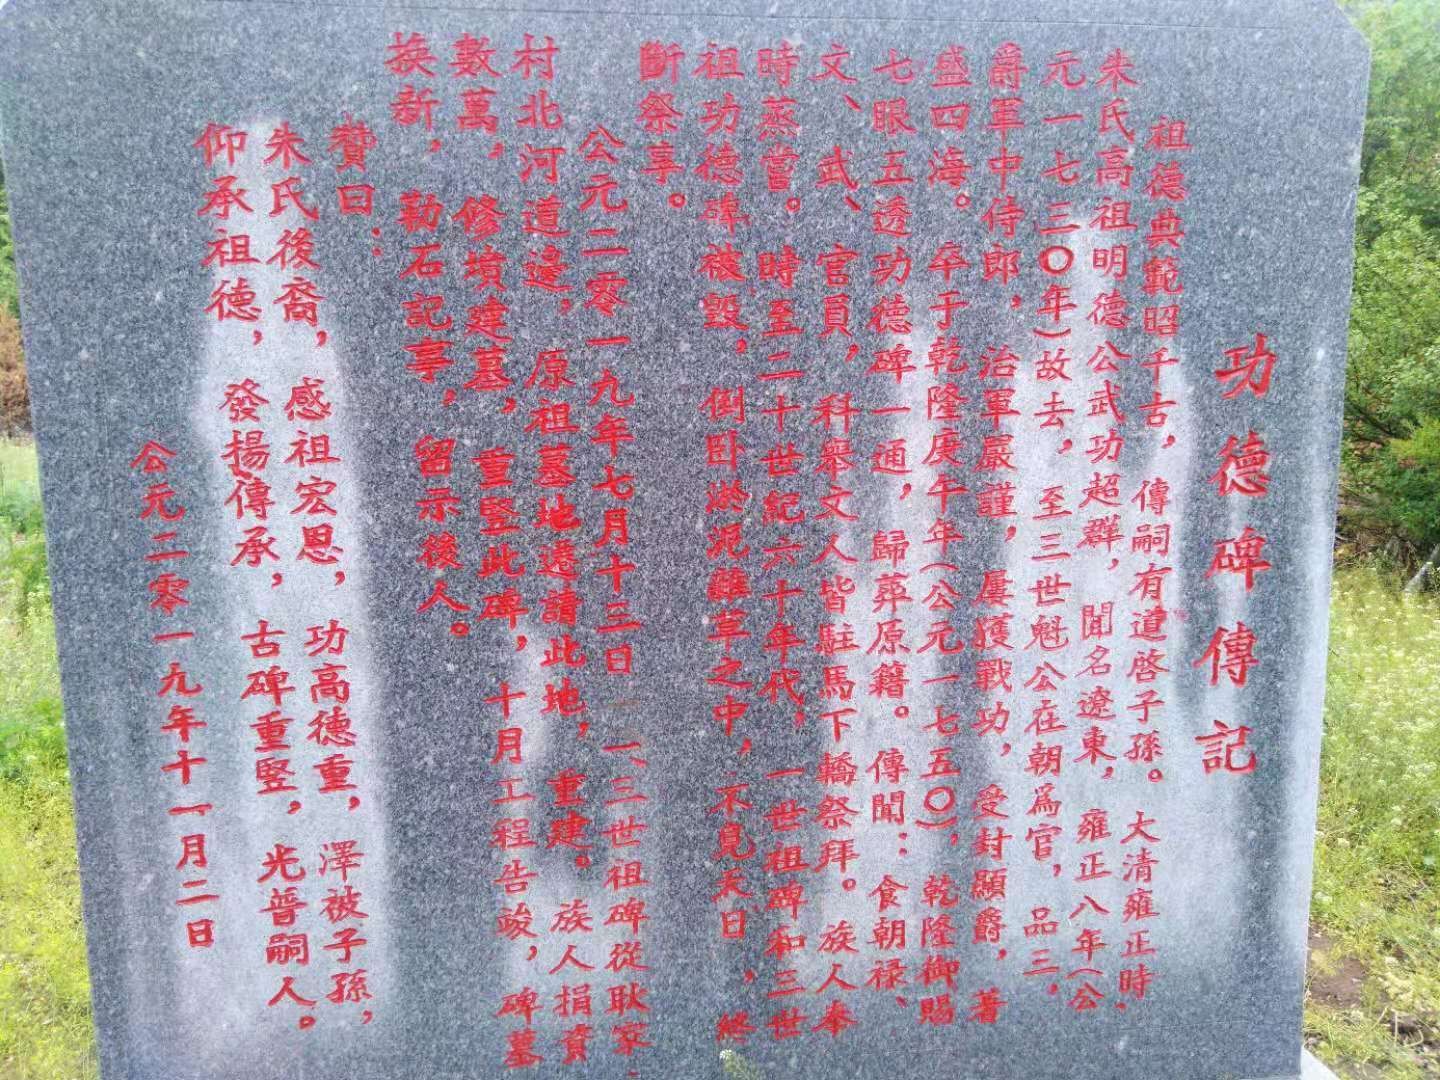 功德碑傳記
祖德典範昭千古，傳嗣有道啓子孫。大清雍正時，
朱氏高祖明德公武功超群，聞名遼東，雍正八年（公
元一七三〇年）故去，至三世魁公在朝爲官，品三，
爵軍中侍郎，治軍嚴謹，屢獲戰功，受封顯爵，著
盛四海。卒于乾隆庚午年（公元一七五〇），乾隆御賜
七眼五透功德碑一通，歸葬原籍。傳聞：食朝禄、
文、武、官員，科舉文人皆駐馬下轎祭拜。族人奉
時蒸嘗。時至二十世紀六十年代，一世祖碑和三世
祖功德碑被毀，倒卧淤泥雜草之中，不見天日，終
斷祭享。
公元二零一九年七月十三日一、三世祖碑從耿家
村北河道邊，原祖墓地遷請此地，重建。族人捐資
數萬，修墳建墓，重竪此碑，十月工程告竣，碑墓
換新，勒石記事，留示後人。
贊曰：
朱氏後裔，感祖宏恩，功高德重，澤被子孫，
仰承祖德，發揚傳承，古碑重竪，光普嗣人。
公元二零一九年十一月二日